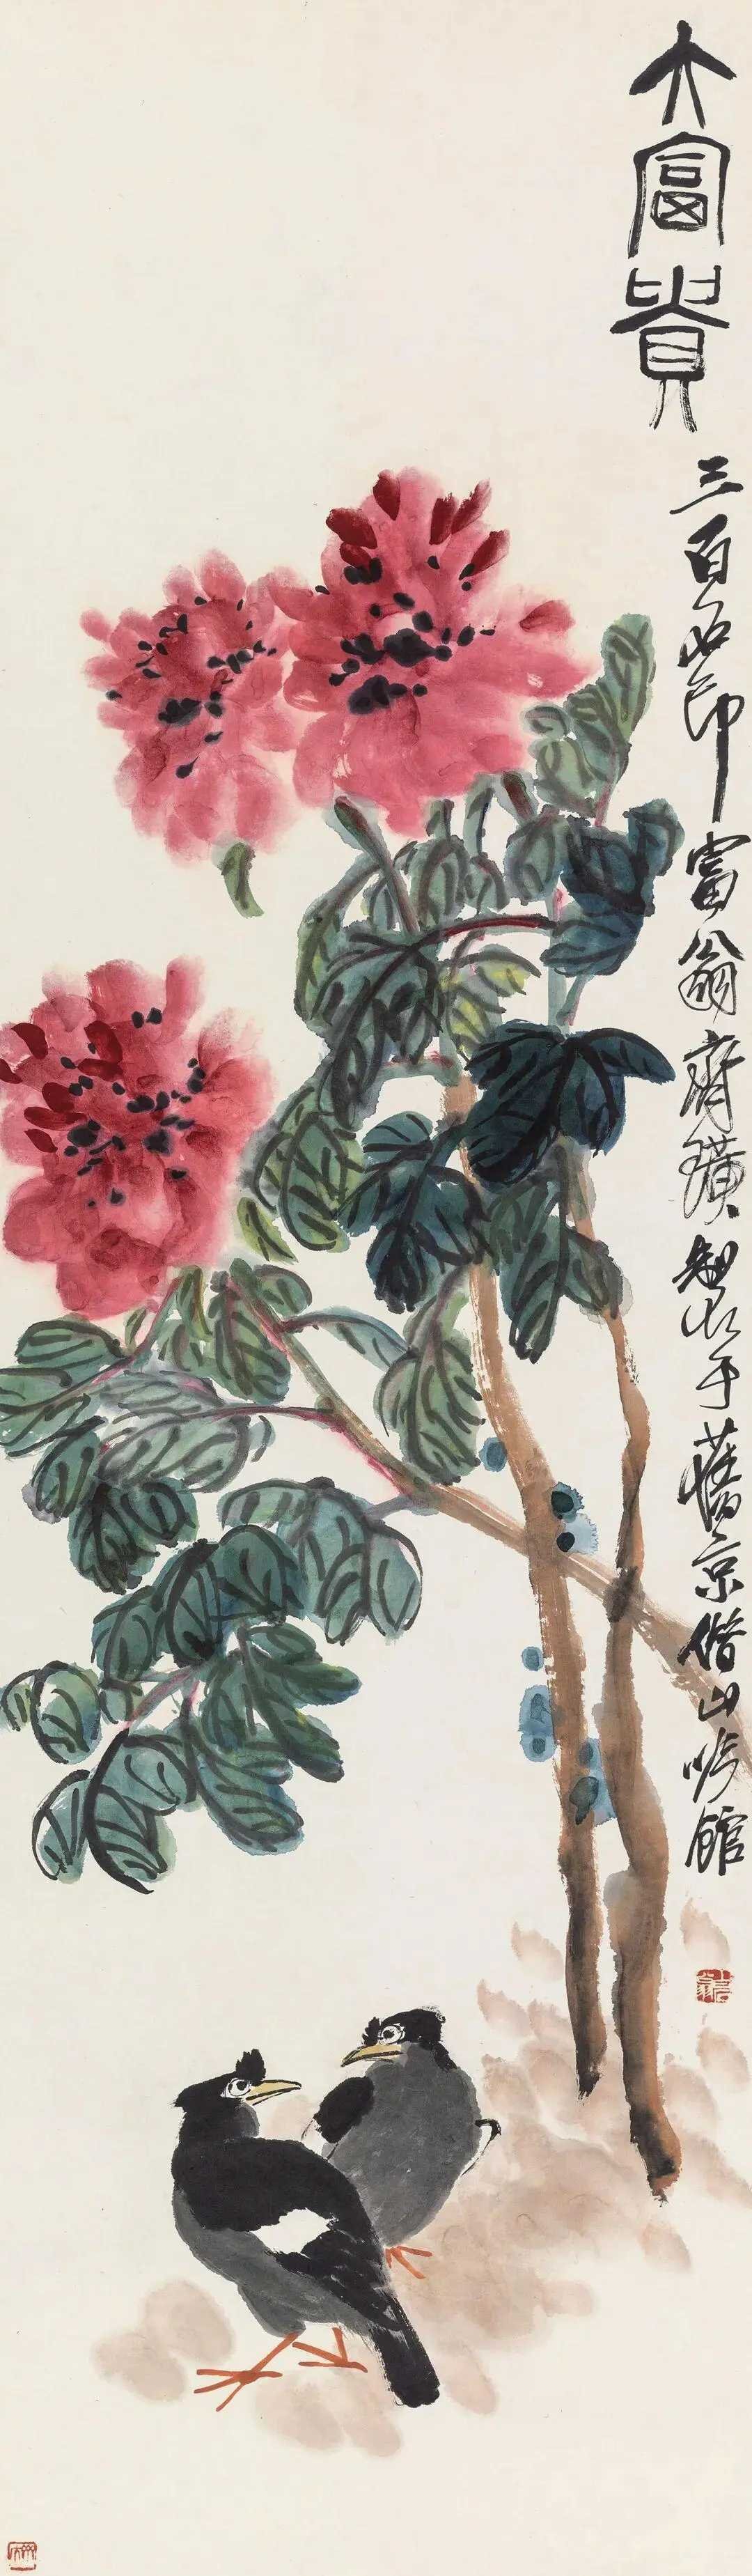 大富貴
三百石印富翁齊璜製於于舊京借山吟館